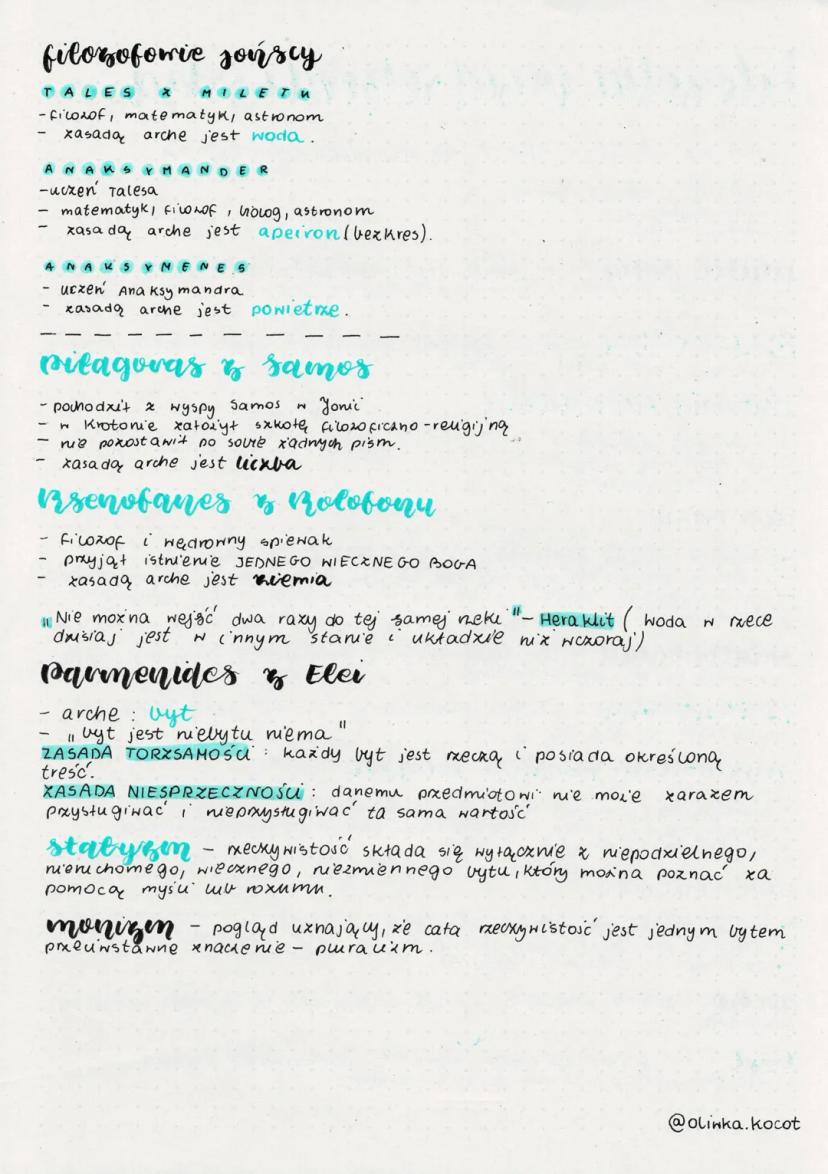 filozofowie jońscy
TALES Z MILETU
-filozof, matematyk, astronom
- zasadą arche jest woda.
ANAKSYMANDER
-uczeń Talesa
- matematyk, filozof, biolog, astronom
- zasadą arche jest apeiron (bezkres).
ANAKSYMENES
- uczeń Anaksymandra
- zasadą arche jest powietrze.
Pitagoras z Samos
- pochodził z wyspy Samos w Jonii
- w Krotonie założył szkołę filozoficzno-religijną
- nie pozostawił po sobie żadnych pism.
- zasadą arche jest liczba
Ksenofanes z Kolofonu
- filozof i wędrowny śpiewak
- przyjął istnienie JEDNEGO WIECZNEGO BOGA
- zasadą arche jest ziemia
"Nie można wejść dwa razy do tej samej rzeki" - Heraklit ( woda w rzece
dzisiaj jest w innym stanie i układzie niż wczoraj)
Parmenides z Elei
- arche : byt
- "byt jest niebytu niema"
ZASADA TORZSAMOŚCI : każdy byt jest rzeczą i posiada określoną
treść.
ZASADA NIESPRZECZNOŚCI : danemu przedmiotowi nie może zarazem
przysługiwać i nieprzysługiwać ta sama wartość
statyzm - rzeczywistość składa się wyłącznie z niepodzielnego,
nieruchomego, wiecznego, niezmiennego bytu, który można poznać za
pomocą myśli lub rozumu.
monizm - pogląd uznający, że cała rzeczywistość jest jednym bytem
przeciwstawne znaczenie - pluralizm.
@olinka.kocot